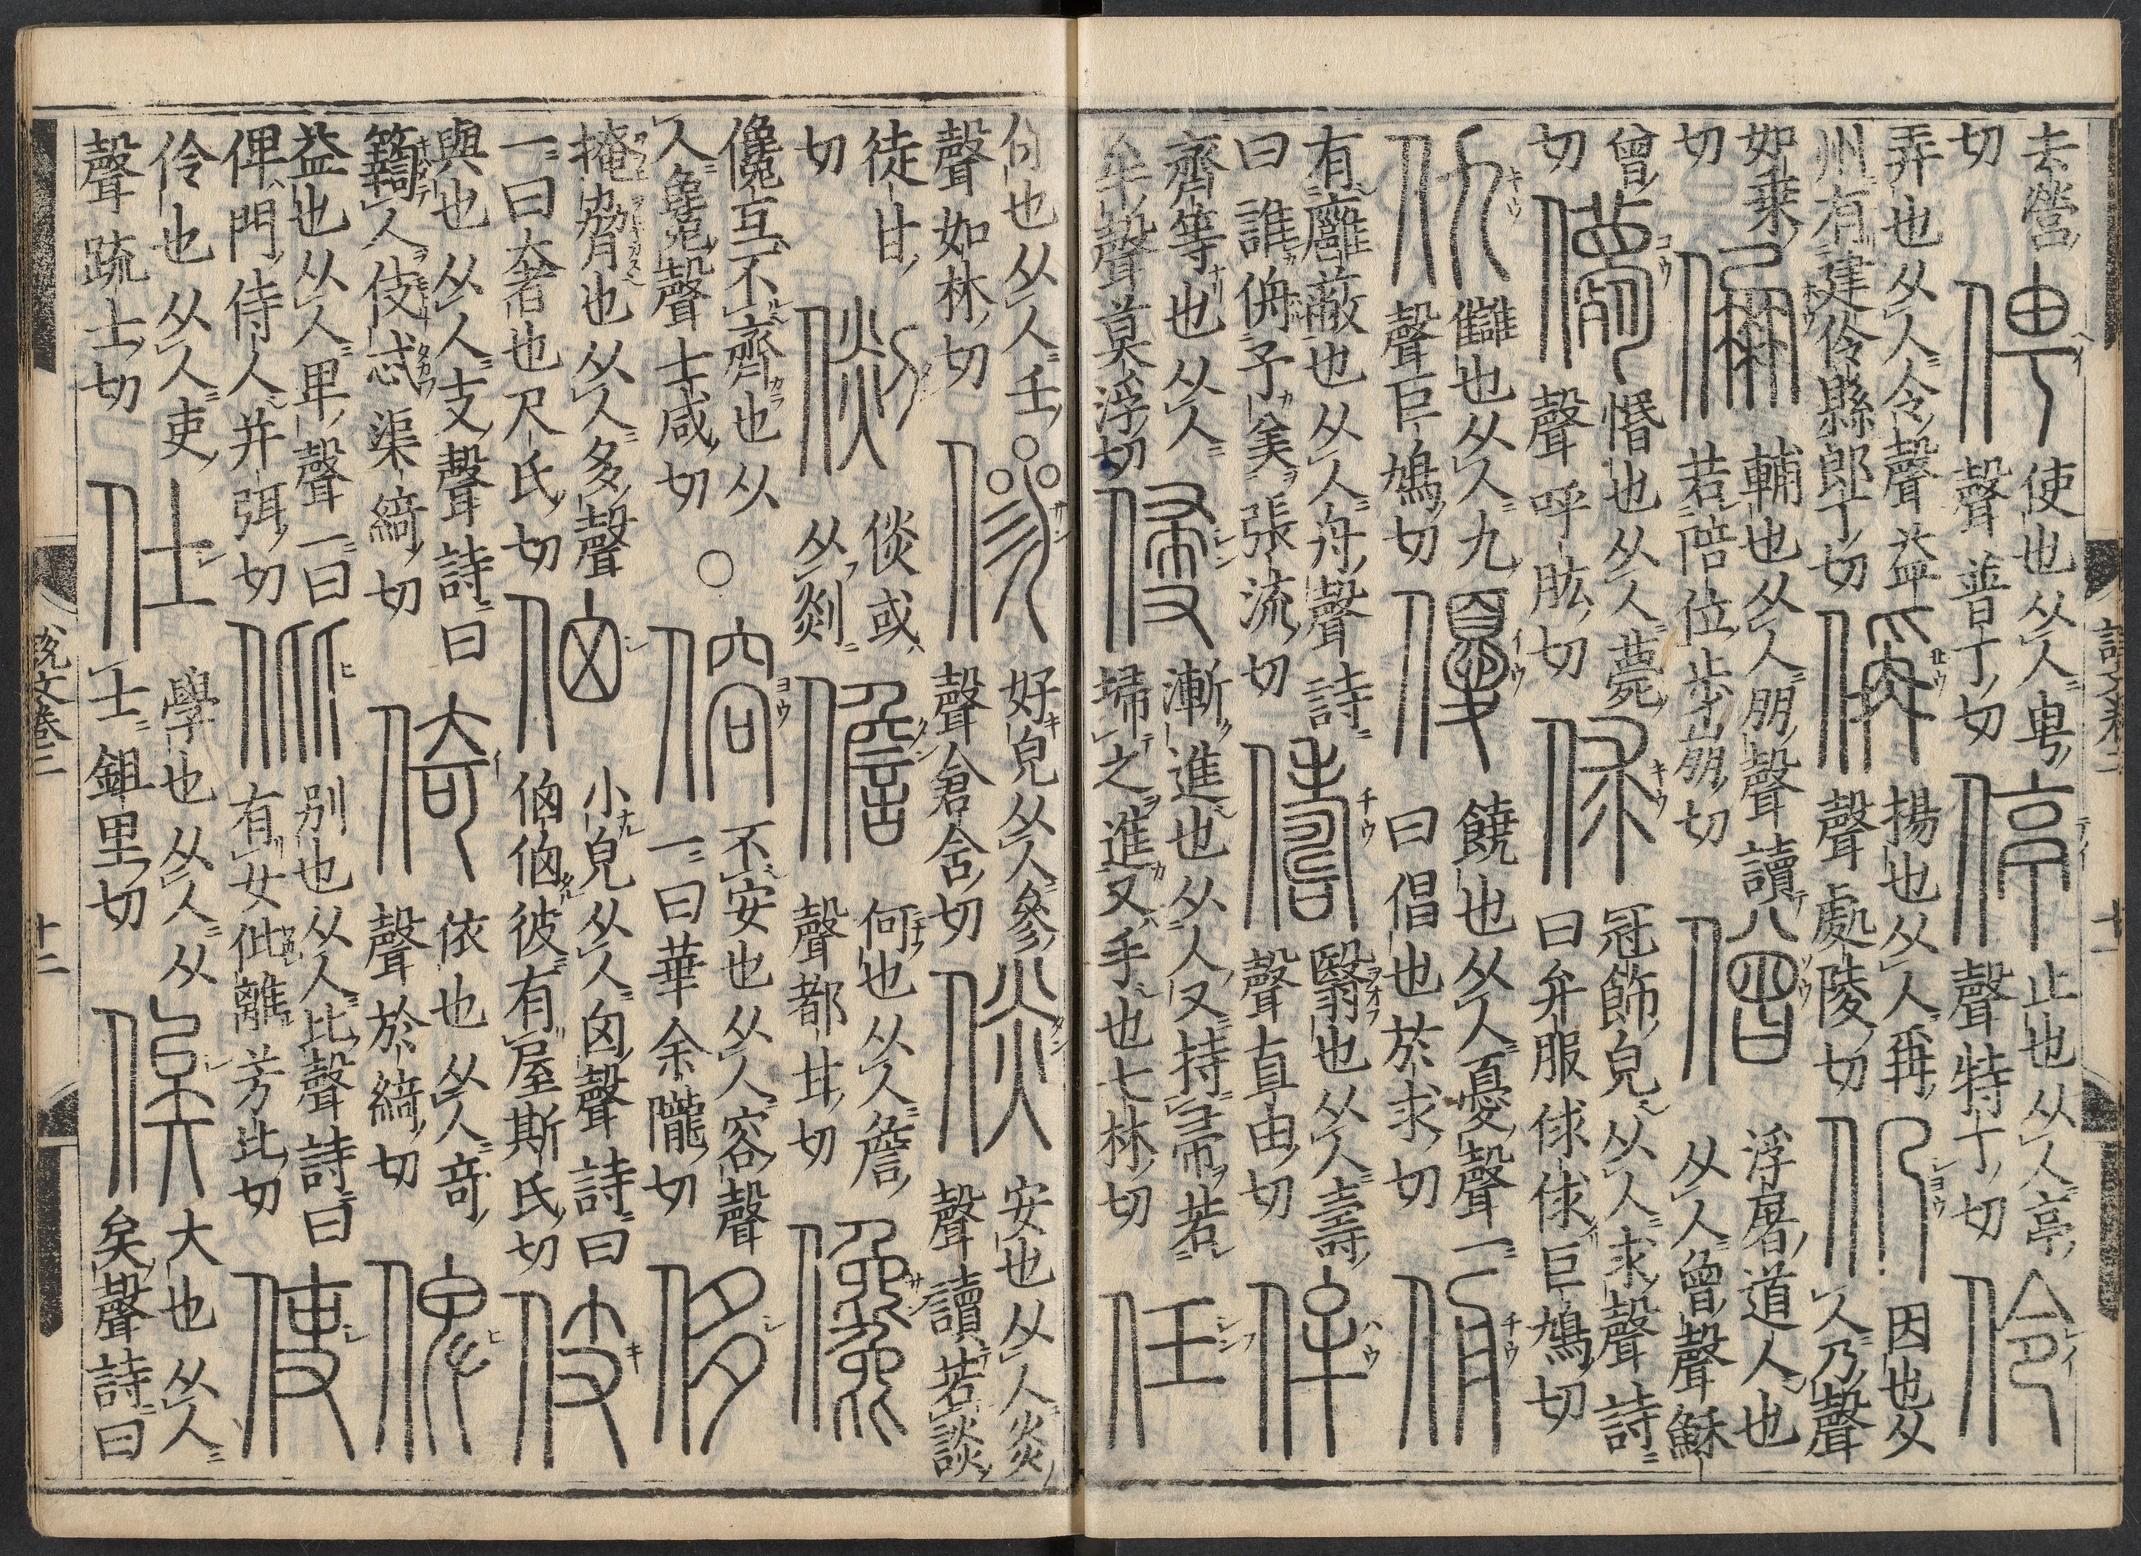 去營
切
俜
使也从人甹
聲普丁切
停
止也从人亭
聲特丁切
伶
弄也从人令聲益
州有建伶縣郎丁切
偁
揚也从人爯
聲處陵切
仍
因也从
人乃聲
如乗
切
倗
輔也从人朋聲讀
若陪位步崩切
僧
浮屠道人也
从人曾聲穌
曾
切
儚
惛也从人薨
聲呼肱切
俅
冠飾皃从人求聲詩
曰弁服俅俅巨鳩切
仇
讎也从人九
聲巨鳩切
優
饒也从人憂聲一
曰倡也於求切
侜
有廱蔽也从人舟聲詩
曰誰侜予美張流切
儔
翳也从人壽
聲直由切
侔
齊等也从人
牟聲莫浮切
侵
漸進也从人又持帚若
埽之進又手也七林切
任
何也从人壬
聲如林切
傪
好皃从人參
聲倉含切
倓
安也从人炎
聲讀若談
徒甘
切
倓或
从剡
儋
何也从人詹
聲都甘切
儳
儳互不齊也从
人毚聲士咸切
○
傛
不安也从人容聲
一曰華余隴切
侈
掩脅也从人多聲
一曰奢也尺氏切
小皃从人囟聲詩曰
彼有屋斯氏切
伎
與也从人支聲詩曰
人伎忒渠綺切
倚
依也从人奇
聲於綺切
俾
益也从人卑聲一曰
俾門侍人并弭切
仳
别也从人比聲詩曰
有女仳離芳比切
使
伶也从人吏
聲疏士切
仕
學也从人从
士鉏里切
俟
大也从人
矣聲詩曰
說文卷三
十二